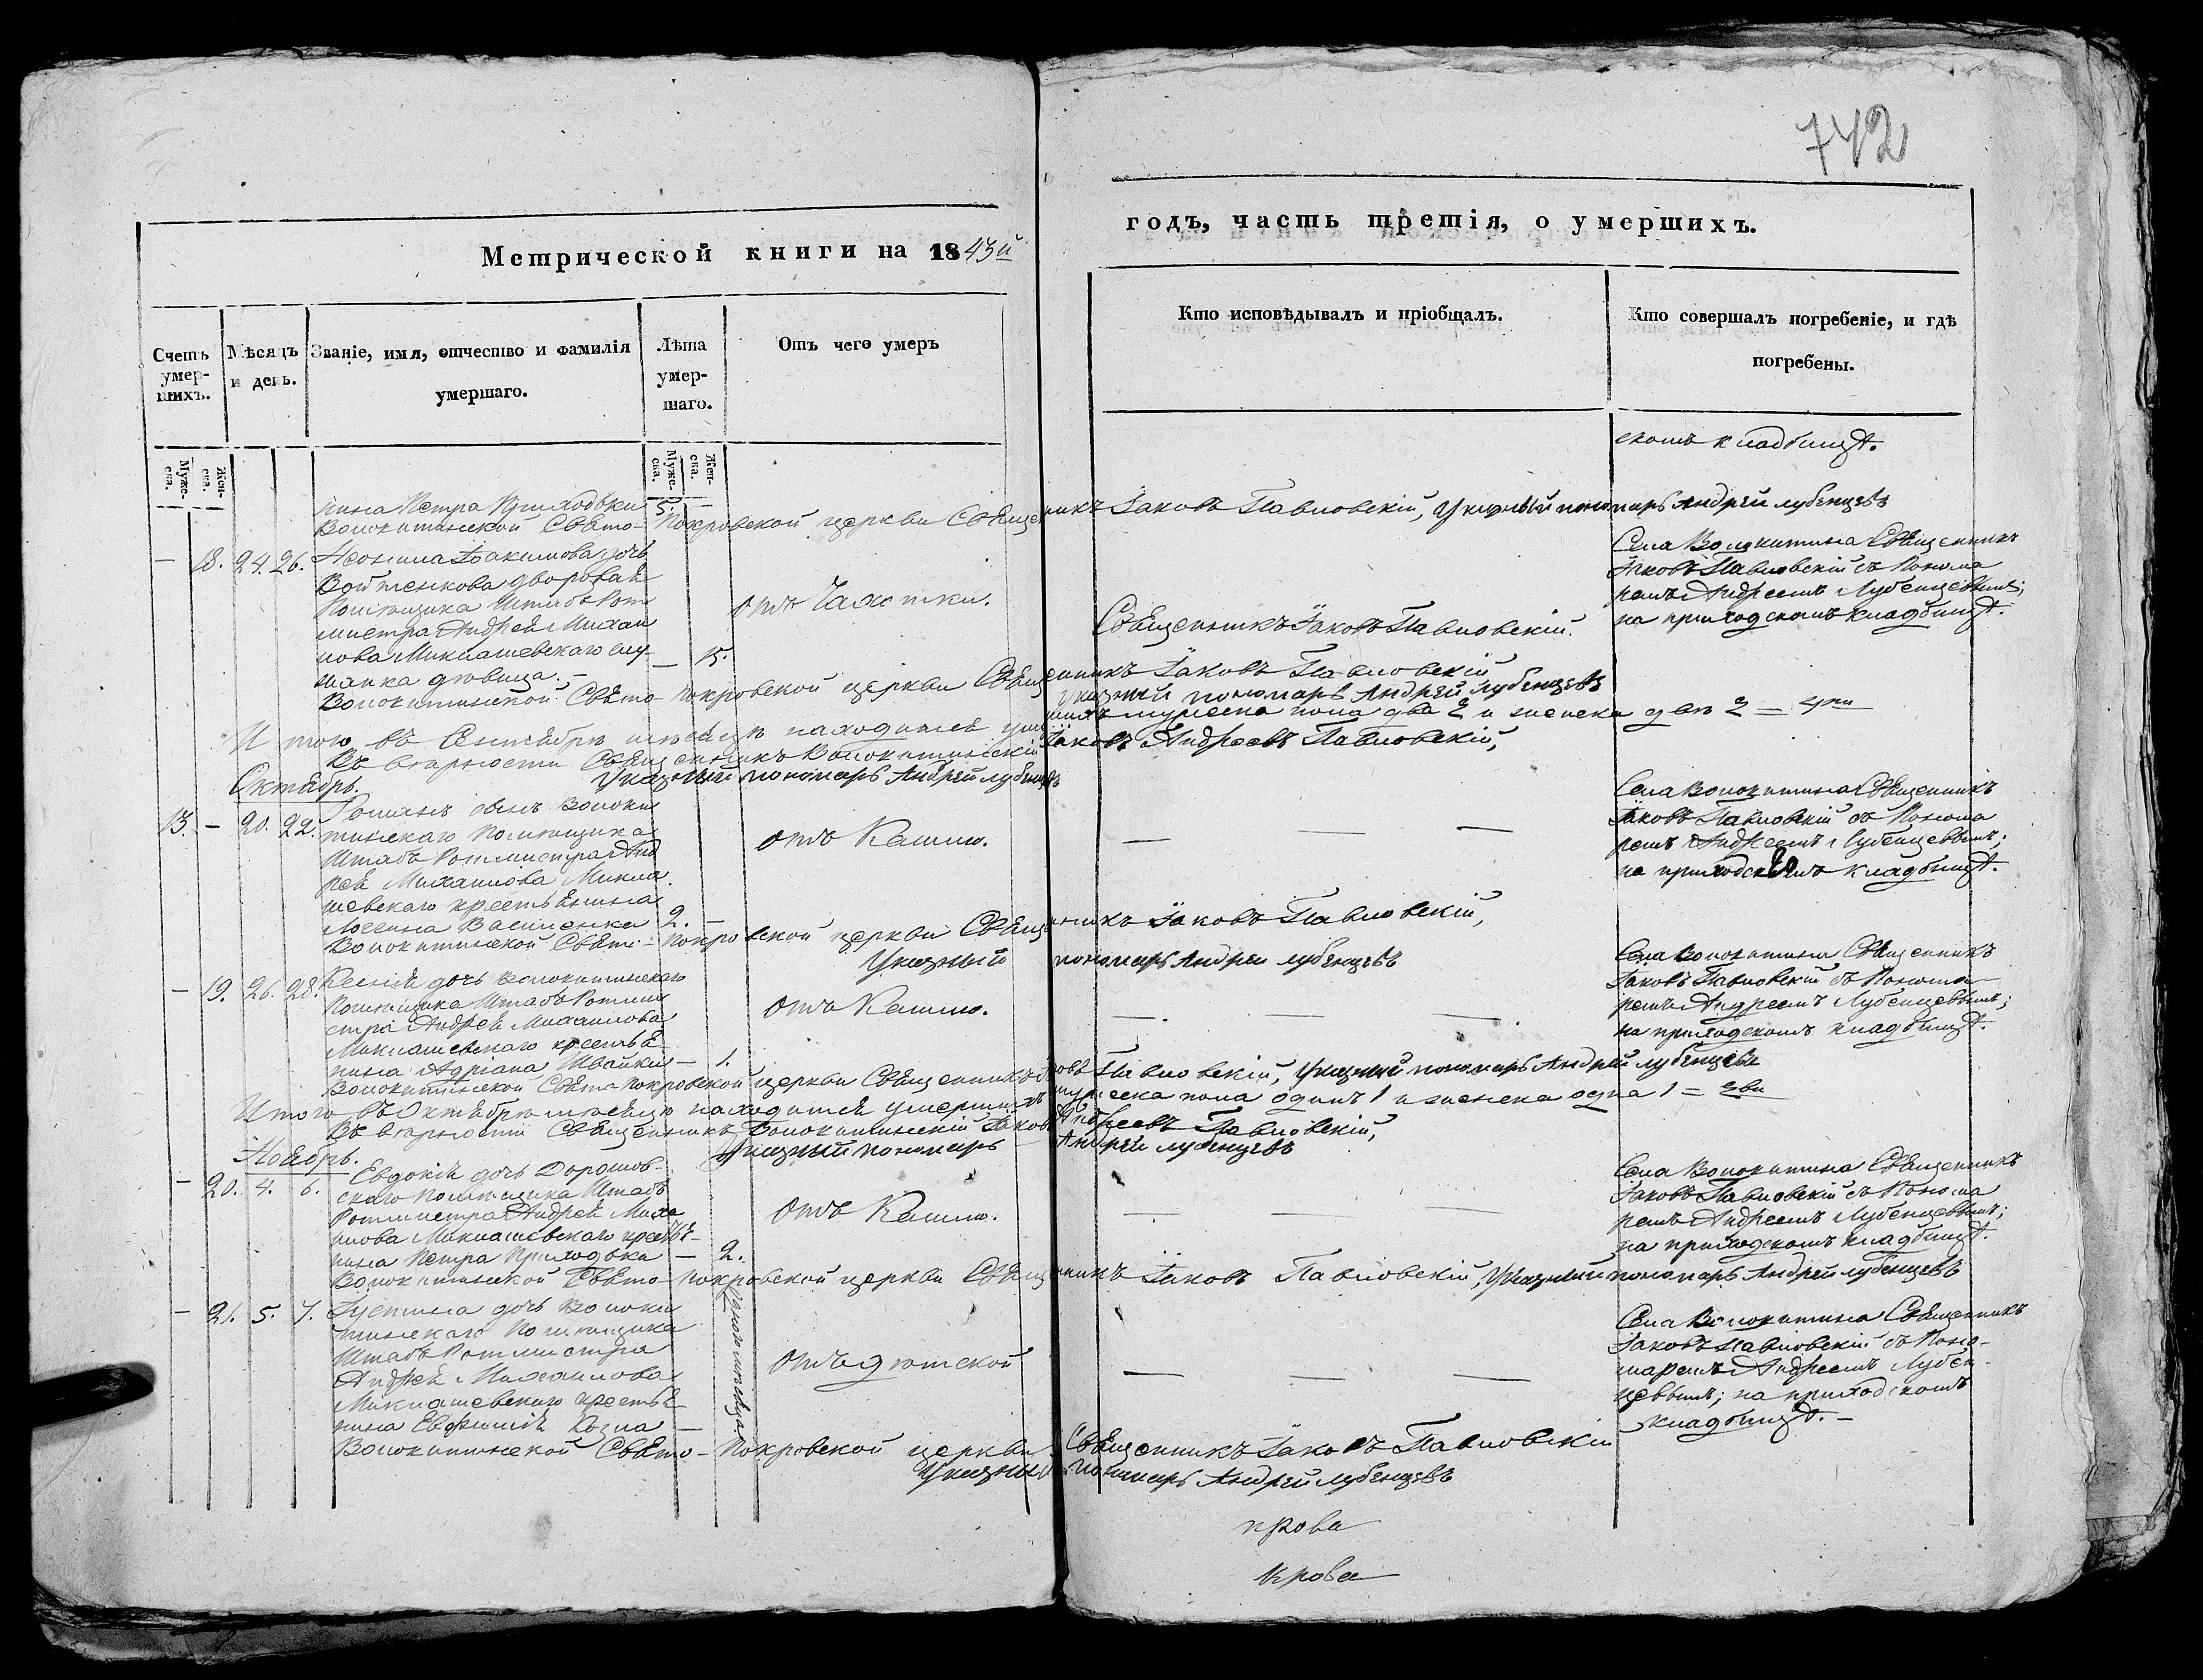 742
Метрической книги на 1843й
годъ, часть третія, о умершихъ.
Счетъ умер-шихъ.
Мѣсяцъ и день.
Званіе, имя, отчество и фамилія умершаго.
Лѣта умер-шаго.
Отъ чего умеръ
Кто исповѣдывалъ и пріобщалъ.
Кто совершалъ погребеніе, и гдѣ погребены.
Муже-ска.
Жен-ска.
Муже-ска.
Жен-ска.
скомъ кладбищѣ.
нина Петра Приходьки 5. –
Волокитинской Свято-Покровской церкви Священникъ Іаковъ Павловскій, Указный пономарь Андрей Лубенцевъ
– 18. 24. 26. Неонила Іоакимова дочь
Войтенкова дворовая
Помѣщика Штабъ Рот
мистра Андрея Михаи
лова Миклашевскаго слу-
жанка дѣвица. – – 15.
отъ Чахотки.
Священникъ Іаковъ Павловскій.
Села Волокитина Священникъ
Іаковъ Павловскій съ Понома
ремъ Андреемъ Лубенцевымъ;
на приходскомъ кладбищѣ.
Волокитинской Свято-Покровской церкви Священникъ Іаковъ Павловскій
Указный пономарь Андрей Лубенцевъ
Итого въ Сентябрѣ мѣсяцѣ находится умершихъ мужеска пола два 2 и женска двѣ 2 = 4ри
Въ вѣрности Священникъ Волокитинскій Іаковъ Андреевъ Павловскій,
Указный пономарь Андрей Лубенцевъ
Октябрь.
13. – 20. 22. Романъ сынъ Волоки
тинскаго Помѣщика
Штабъ Ротмистра Анд
рея Михаилова Микла
шевскаго крестьянина
Логина Василенка 2. –
отъ Кашлю.
— — —
Села Волокитина Священникъ
Іаковъ Павловскій съ Понома
ремъ Андреемъ Лубенцевымъ;
на приходскомъ кладбищѣ.
Волокитинской Свято-Покровской церкви Священникъ Іаковъ Павловскій,
Указный пономарь Андрей Лубенцевъ
– 19. 26. 28. Ксенія дочь Волокитинскаго
Помѣщика Штабъ Ротми
стра Андрея Михаилова
Миклашевскаго крестья
нина Адріана Швайки – 1.
отъ Кашлю.
— — —
Села Волокитина Священникъ
Іаковъ Павловскій съ Понома
ремъ Андреемъ Лубенцевымъ;
на приходскомъ кладбищѣ.
Волокитинской Свято-Покровской церкви Священникъ Іаковъ Павловскій, Указный пономарь Андрей Лубенцевъ
Итого въ Октябрѣ мѣсяцѣ находится умершихъ мужеска пола одинъ 1 и женска одна 1 = два
Въ вѣрности Священникъ Волокитинскій Іаковъ Андреевъ Павловскій,
Указный пономарь Андрей Лубенцевъ
Ноябрь.
– 20. 4. 6. Евдокія дочь Дорошов-
скаго Помѣщика Штабъ
Ротмистра Андрея Миха
илова Миклашевскаго крестья-
нина Петра Приходька – 2.
отъ Кашлю.
— — —
Села Волокитина Священникъ
Іаковъ Павловскій съ Понома
ремъ Андреемъ Лубенцевымъ;
на приходскомъ кладбищѣ.
Волокитинской Свято-Покровской церкви Священникъ Іаковъ Павловскій, Указный пономарь Андрей Лубенцевъ
– 21. 5. 7. Іустина дочь Волоки
тинскаго Помѣщика
Штабъ Ротмистра
Андрея Михаилова
Миклашевскаго крестья
нина Евфимія Козла –
одного мѣсяца
отъ дѣтской
— — —
Села Волокитина Священникъ
Іаковъ Павловскій съ Поно-
маремъ Андреемъ Лубен-
цевымъ; на приходскомъ
кладбищѣ. –
Волокитинской Свято-Покровской церкви Священникъ Іаковъ Павловскій
Указный пономарь Андрей Лубенцевъ
крова
крова